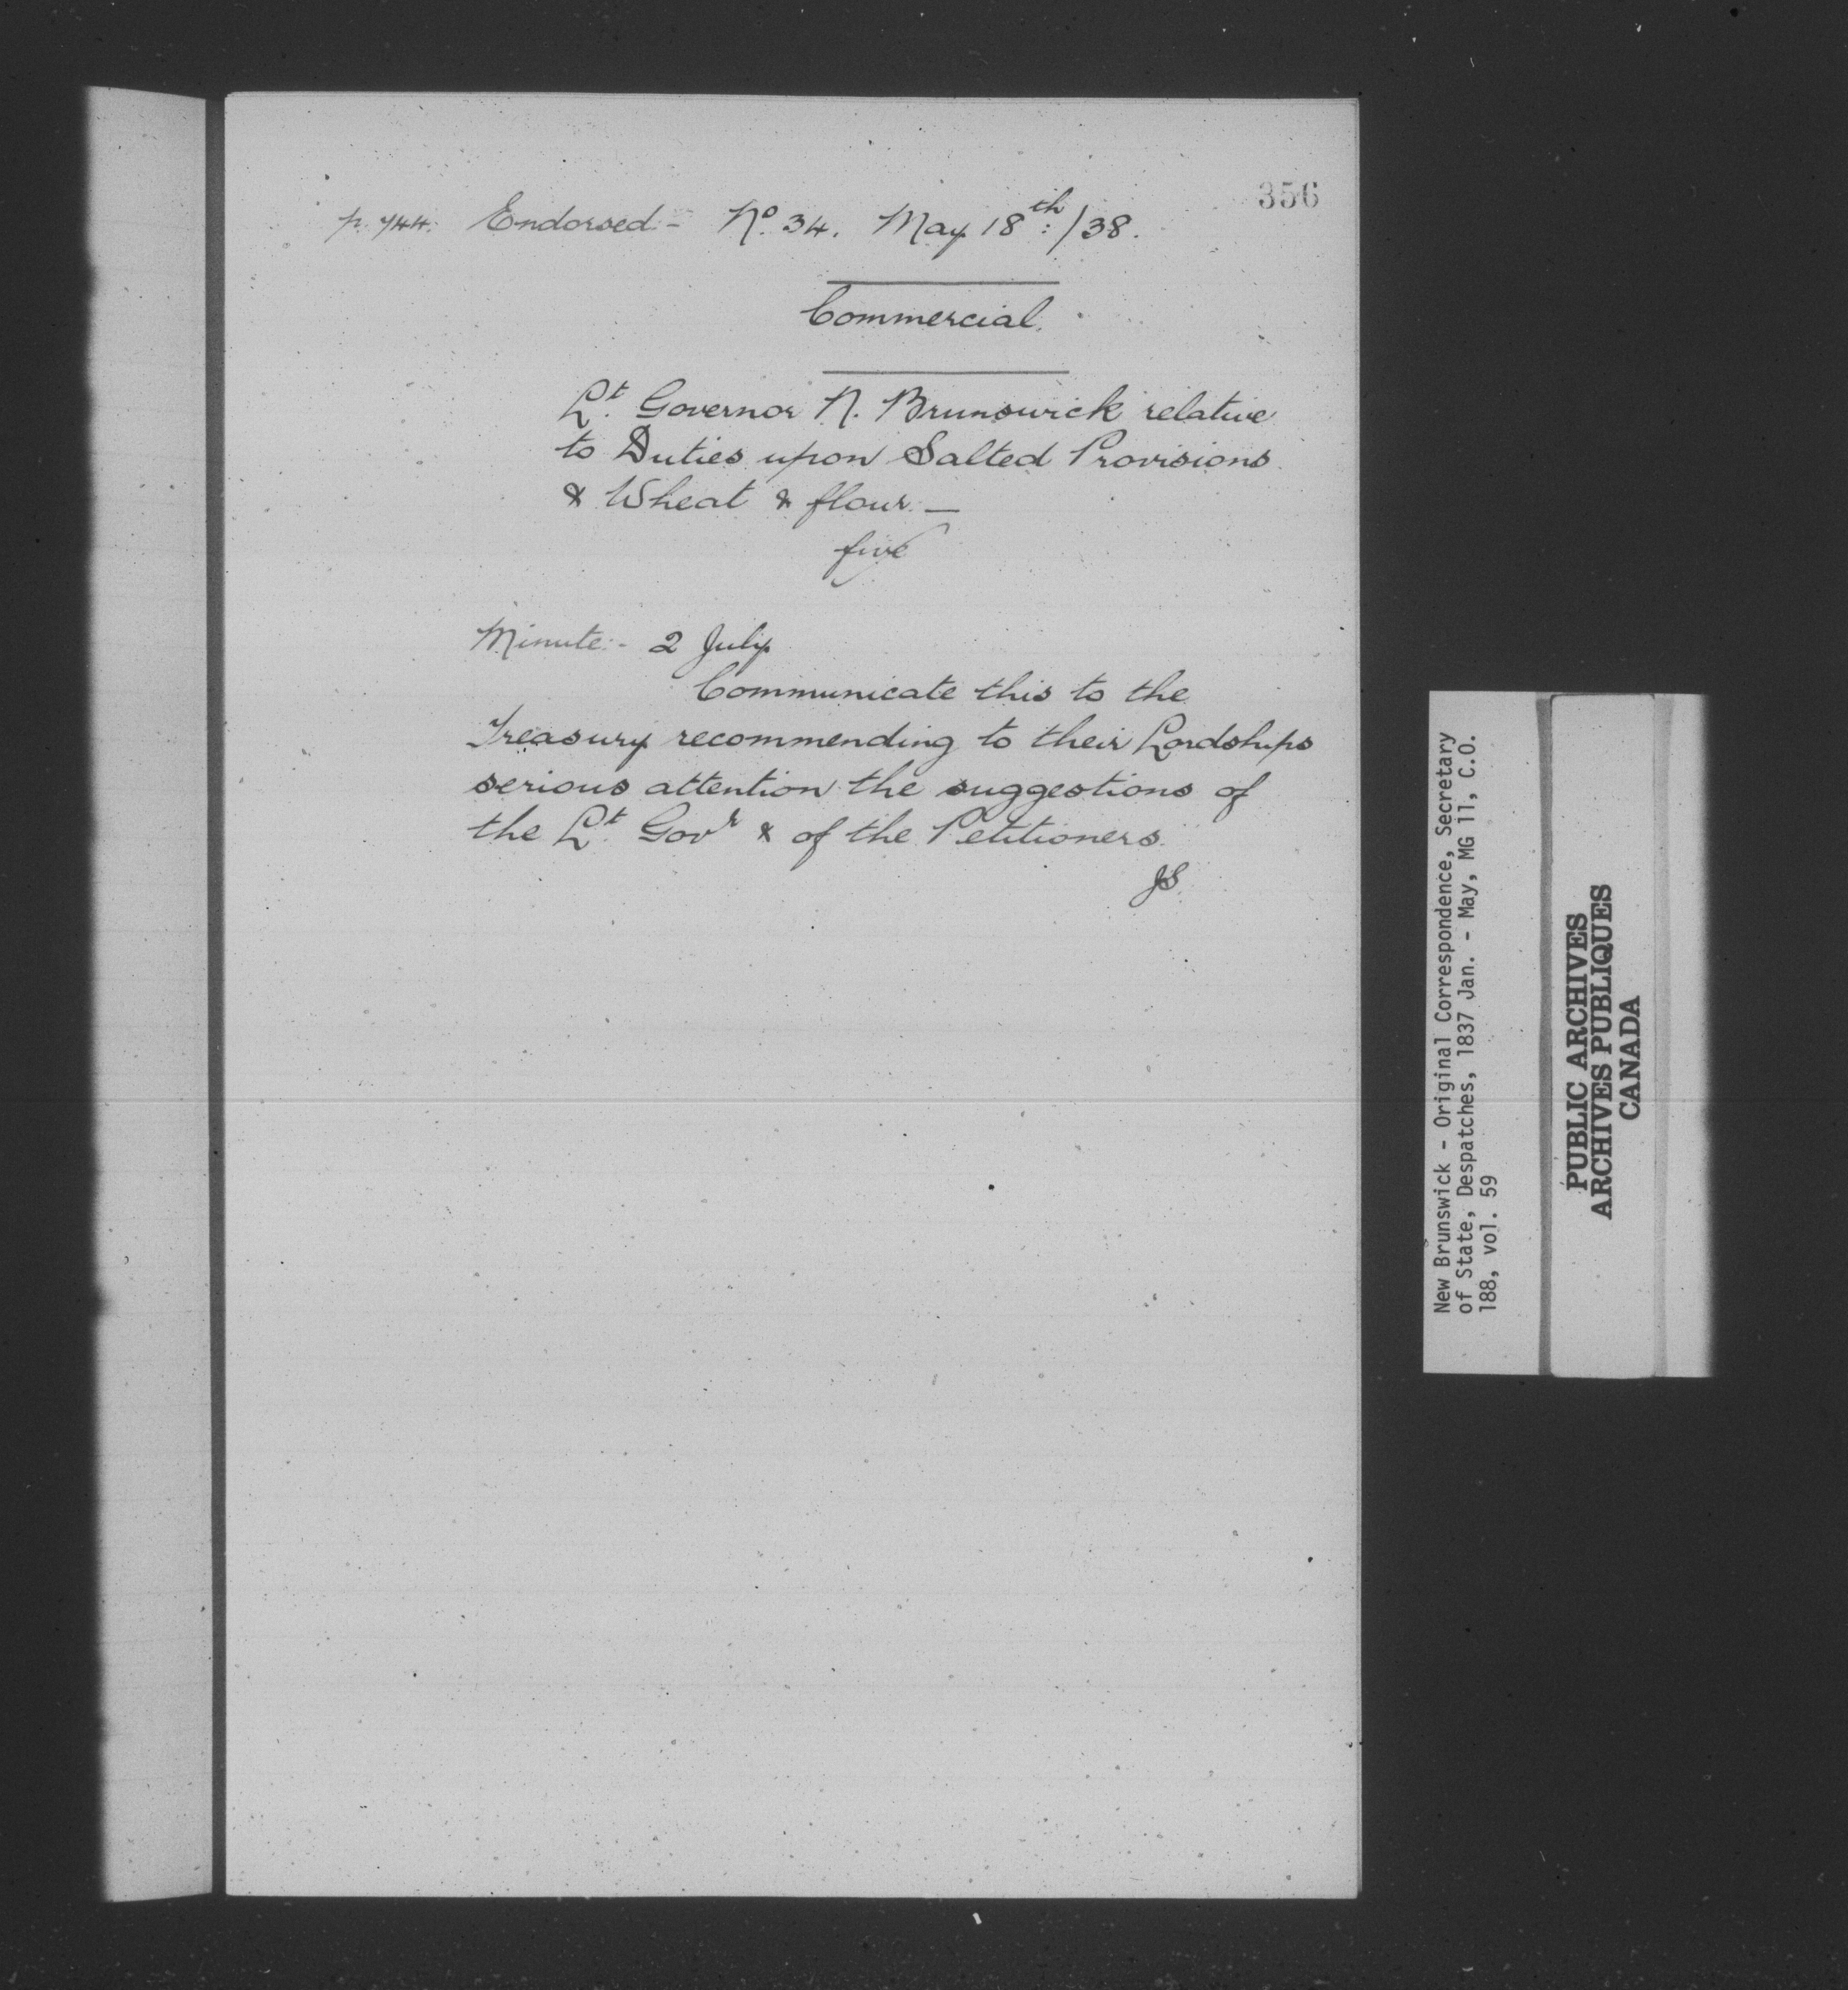 356
p. 744. Endorsed:- No. 34. May 18th:/38.
Commercial.
Lt. Governor N. Brunswick relative
to Duties upon Salted Provisions
& Wheat & flour. —
five
Minute:- 2 July
Communicate this to the
Treasury recommending to their Lordships
serious attention the suggestions of
the Lt. Govr & of the Petitioners.
JS.
New Brunswick - Original Correspondence, Secretary
of State, Despatches, 1837 Jan. - May, MG 11, C.O.
188, vol. 59
PUBLIC ARCHIVES
ARCHIVES PUBLIQUES
CANADA